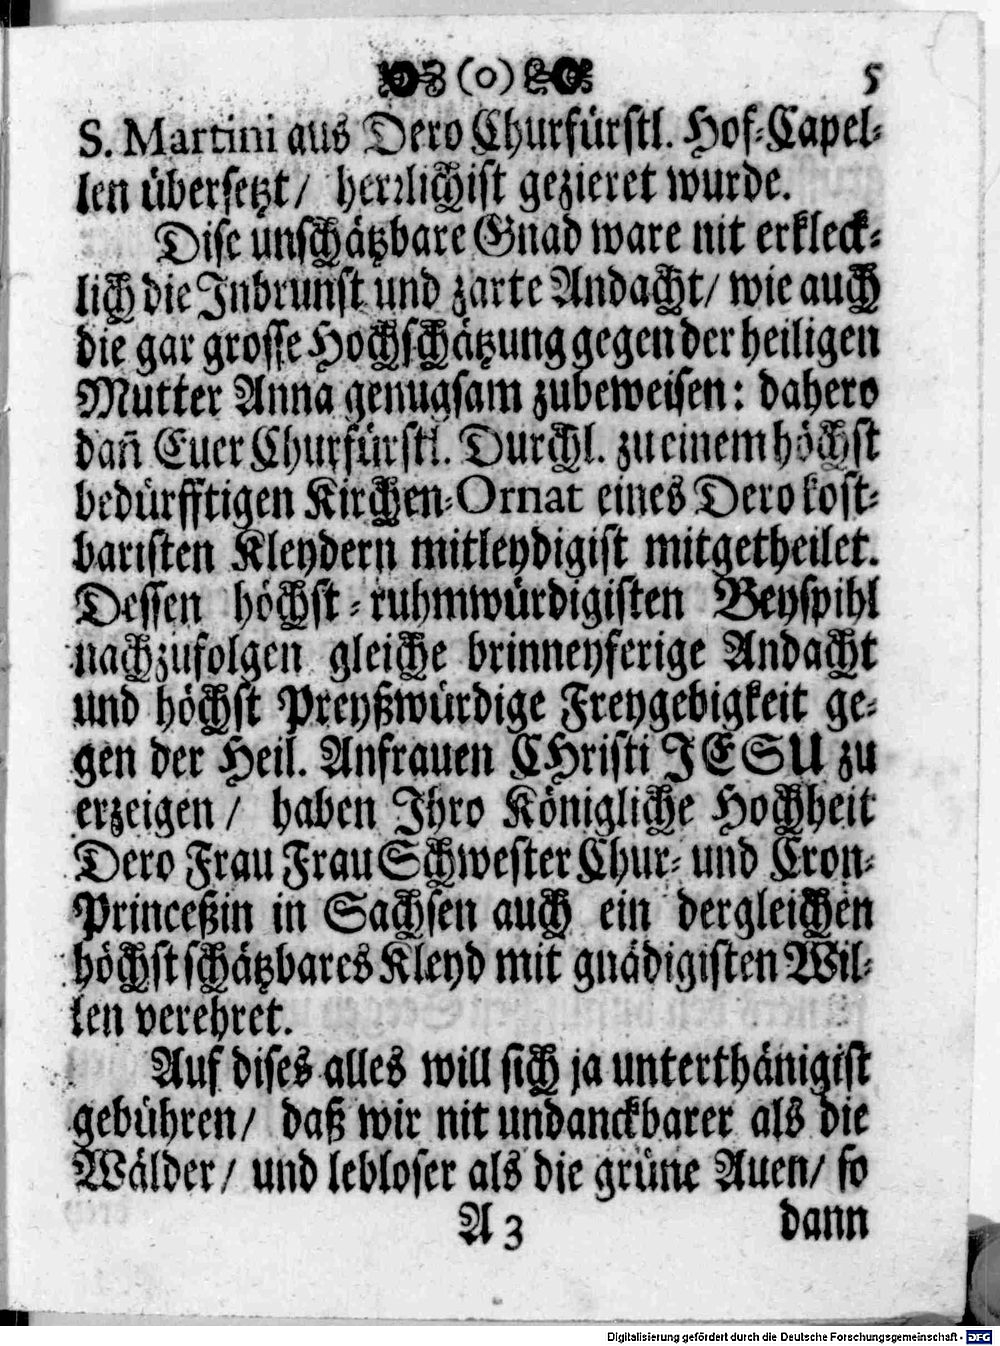 (o) 5
S. Martini aus Dero Churfürstl. Hof-Capel-
len übersetzt/ herrlichist gezieret wurde.
Dise unschätzbare Gnad ware nit erkleck-
lich die Inbrunst und zarte Andacht/ wie auch
die gar grosse Hochschätzung gegen der heiligen
Mutter Anna genugsam zubeweisen: dahero
dañ Euer Churfürstl. Durchl. zu einem höchst
bedürfftigen Kirchen-Ornat eines Dero kost-
baristen Kleydern mitleydigist mitgetheilet.
Dessen höchst-ruhmwürdigisten Beyspihl
nachzufolgen gleiche brinneyferige Andacht
und höchst Preyßwürdige Freygebigkeit ge-
gen der Heil. Anfrauen CHristi JESU zu
erzeigen/ haben Ihro Königliche Hochheit
Dero Frau Frau Schwester Chur- und Cron-
Princeßin in Sachsen auch ein dergleichen
höchstschätzbares Kleyd mit gnädigisten Wil-
len verehret.
Auf dises alles will sich ja unterthänigist
gebühren/ daß wir nit undanckbarer als die
Wälder/ und lebloser als die grüne Auen/ so
A 3 dann
Digitalisierung gefördert durch die Deutsche Forschungsgemeinschaft - DFG